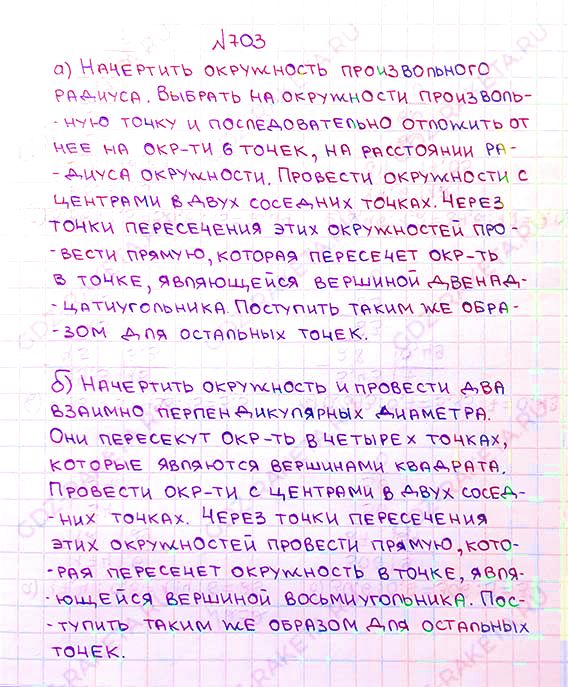 №703
а) Начертить окружность произвольного
радиуса. Выбрать на окружности произволь-
-ную точку и последовательно отложить от
нее на окр-ти 6 точек, на расстоянии ра-
-диуса окружности. Провести окружности с
центрами в двух соседних точках. Через
точки пересечения этих окружностей про-
-вести прямую, которая пересечет окр-ть
в точке, являющейся вершиной двенад-
-цатиугольника. Поступить таким же обра-
-зом для остальных точек.
б) Начертить окружность и провести два
взаимно перпендикулярных диаметра.
Они пересекут окр-ть в четырех точках,
которые являются вершинами квадрата.
Провести окр-ти с центрами в двух сосед-
-них точках. Через точки пересечения
этих окружностей провести прямую, кото-
-рая пересечет окружность в точке, явля-
-ющейся вершиной восьмиугольника. Пос-
-тупить таким же образом для остальных
точек.